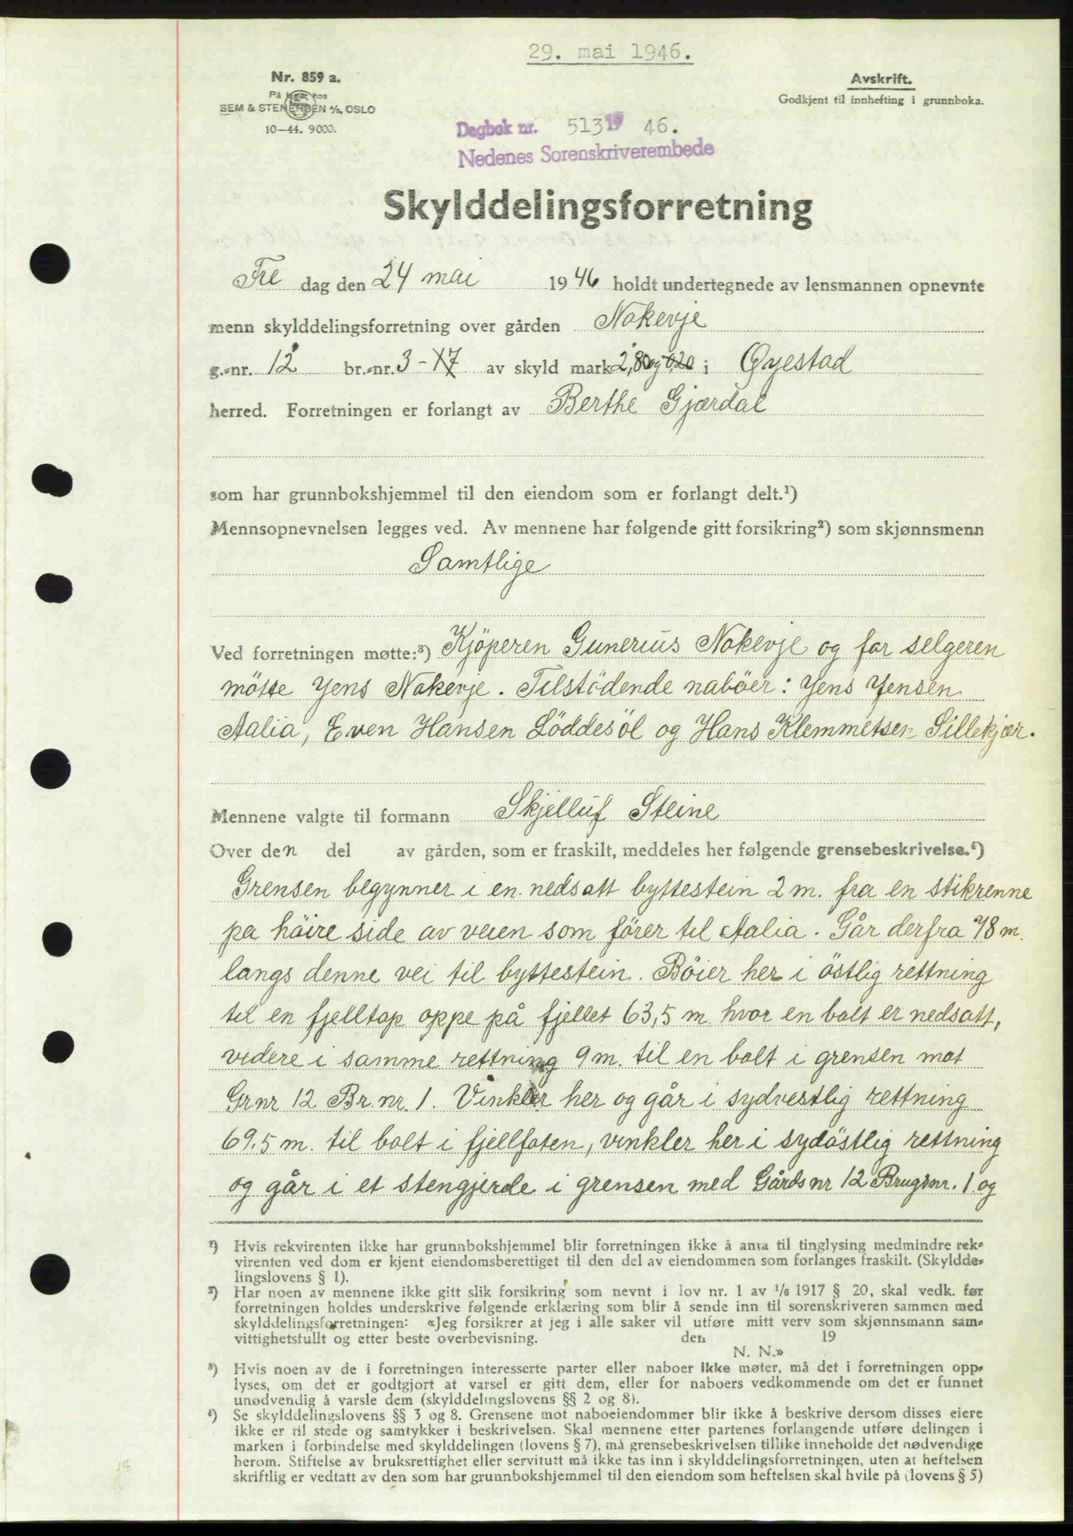 29. mai 1946.
Nr. 859 a.
SEM & STENERSEN A/S, OSLO
10—44. 9000.
Avskrift.
Godkjent til innhefting i grunnboka.
Dagbok nr. 513 19 46.
Nedenes Sorenskriverembede
Skylddelingsforretning
Fre dag den 24 mai 1946 holdt undertegnede av lensmannen opnevnte
menn skylddelingsforretning over gården Nakevje
g.-nr. 12 br.-nr. 3-17 av skyld mark 2,80 og 0,20 i Øyestad
herred. Forretningen er forlangt av Berthe Gjærdal
som har grunnbokshjemmel til den eiendom som er forlangt delt.¹)
Mennsopnevnelsen legges ved. Av mennene har følgende gitt forsikring²) som skjønnsmenn
Samtlige
Ved forretningen møtte:³) Kjöperen Gunerius Nakevje og for selgeren
mötte Jens Nakevje. Tilstödende naböer: Jens Jensen
Aalia, Even Hansen Löddesöl og Hans Klemmetsen Sillekjær.
Mennene valgte til formann Skjelluf Steine
Over den del av gården, som er fraskilt, meddeles her følgende grensebeskrivelse.⁴)
Grensen begynner i en nedsatt byttestein 2 m. fra en stikrenne
på höire side av veien som förer til Aalia. Går derfra 78 m.
langs denne vei til byttestein. Böier her i östlig rettning
til en fjelltop oppe på fjellet 63,5 m hvor en bolt er nedsatt,
videre i samme rettning 9 m. til en bolt i grensen mot
Gr nr 12 Br. nr. 1. Vinkler her og går i sydvestlig rettning
69.5 m. til bolt i fjellfoten, vinkler her i sydöstlig rettning
og går i et stengjerde i grensen med Gårds nr 12 Brugsnr. 1 og
¹) Hvis rekvirenten ikke har grunnbokshjemmel blir forretningen ikke å anta til tinglysing medmindre rek-
virenten ved dom er kjent eiendomsberettiget til den del av eiendommen som forlanges fraskilt. (Skyldde-
lingslovens § 1).
²) Har noen av mennene ikke gitt slik forsikring som nevnt i lov nr. 1 av ¹/₆ 1917 § 20, skal vedk. før
forretningen holdes underskrive følgende erklæring som blir å sende inn til sorenskriveren sammen med
skylddelingsforretningen: «Jeg forsikrer at jeg i alle saker vil utføre mitt verv som skjønnsmann sam-
vittighetsfullt og etter beste overbevisning. den 19
N. N.»
³) Hvis noen av de i forretningen interesserte parter eller naboer ikke møter, må det i forretningen opp-
lyses, om det er godtgjort at varsel er gitt dem, eller for naboers vedkommende om det er funnet
unødvendig å varsle dem (skylddelingslovens §§ 2 og 8).
⁴) Se skylddelingslovens §§ 3 og 8. Grensene mot naboeiendommer blir ikke å beskrive dersom disses eiere
ikke er til stede og samtykker i beskrivelsen. Skal mennene etter partenes forlangende utføre delingen i
marken i forbindelse med skylddelingen (lovens § 7), må grensebeskrivelsen tillike inneholde det nødvendige
herom. Stiftelse av bruksrettighet eller servitutt må ikke tas inn i skylddelingsforretningen, uten at heftelsen
skriftlig er vedtatt av den som har grunnbokshjemmel til den eiendom som heftelsen skal hvile på (lovens § 5)